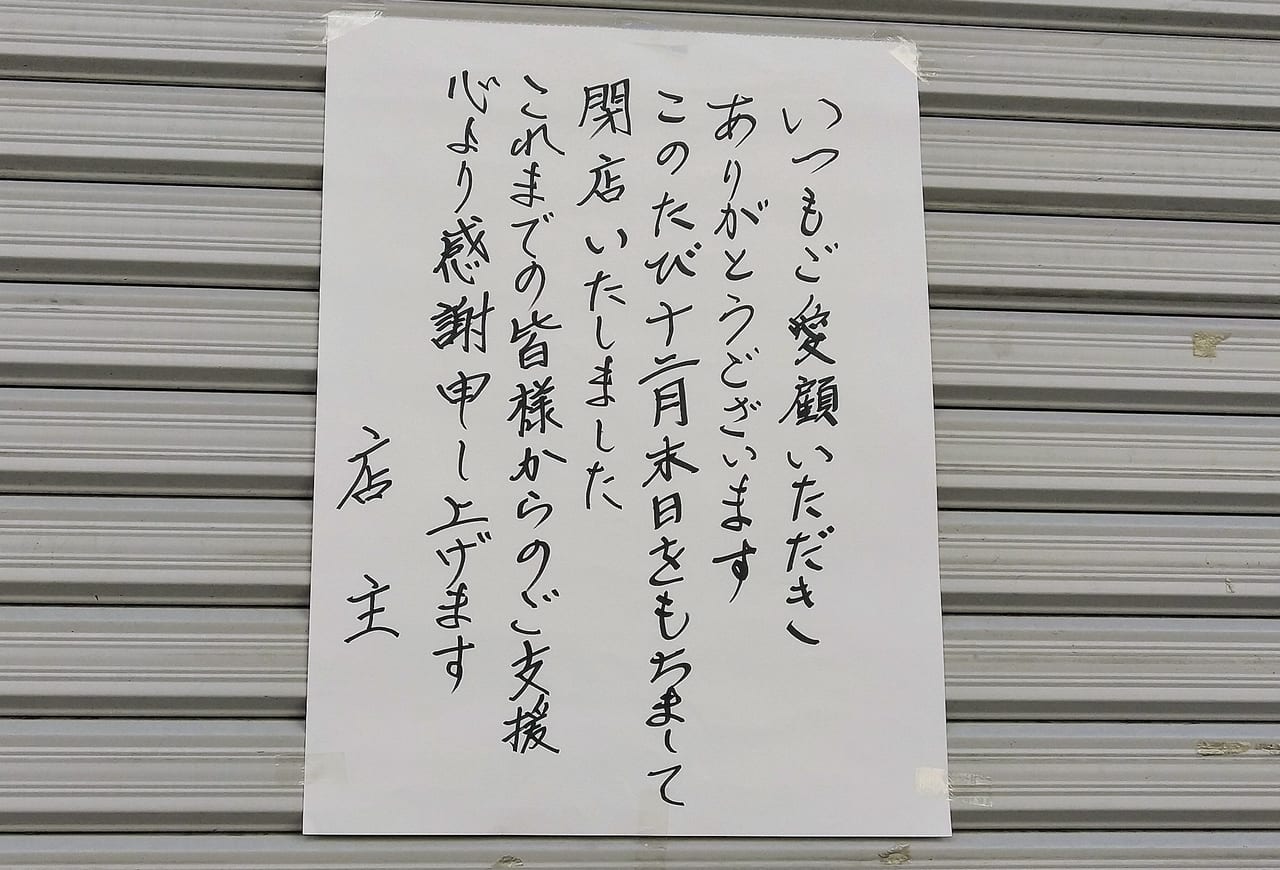 いつもご愛顧いただき
ありがとうございます
このたび十二月末日をもちまして
閉店いたしました
これまでの皆様からのご支援
心より感謝申し上げます
店主